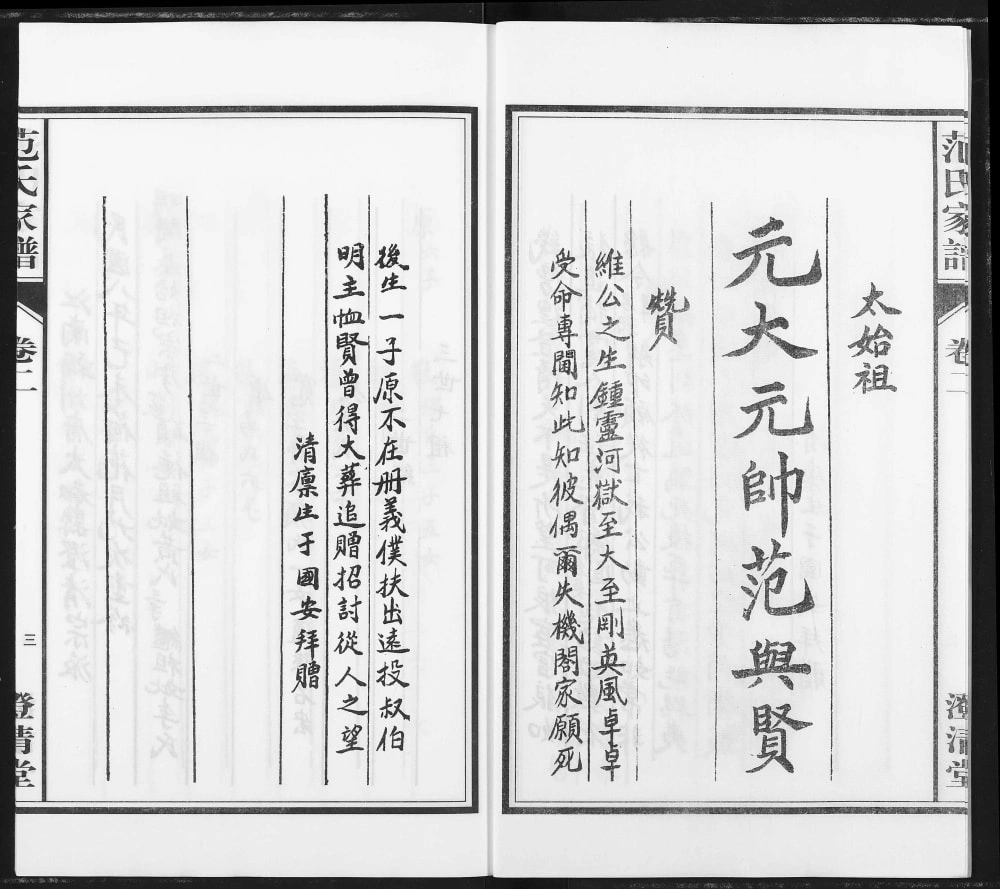 范氏家譜
卷二
澄清堂
太始祖
元大元帥范與賢
贊
維公之生鍾靈河嶽至大至剛英風卓卓
受命專閫知此知彼偶爾失機閤家願死
後生一子原不在册義僕扶出遠投叔伯
明主恤賢曾得大葬追贈招討從人之望
清廩生于國安拜贈
范氏家譜
卷二
三
澄清堂